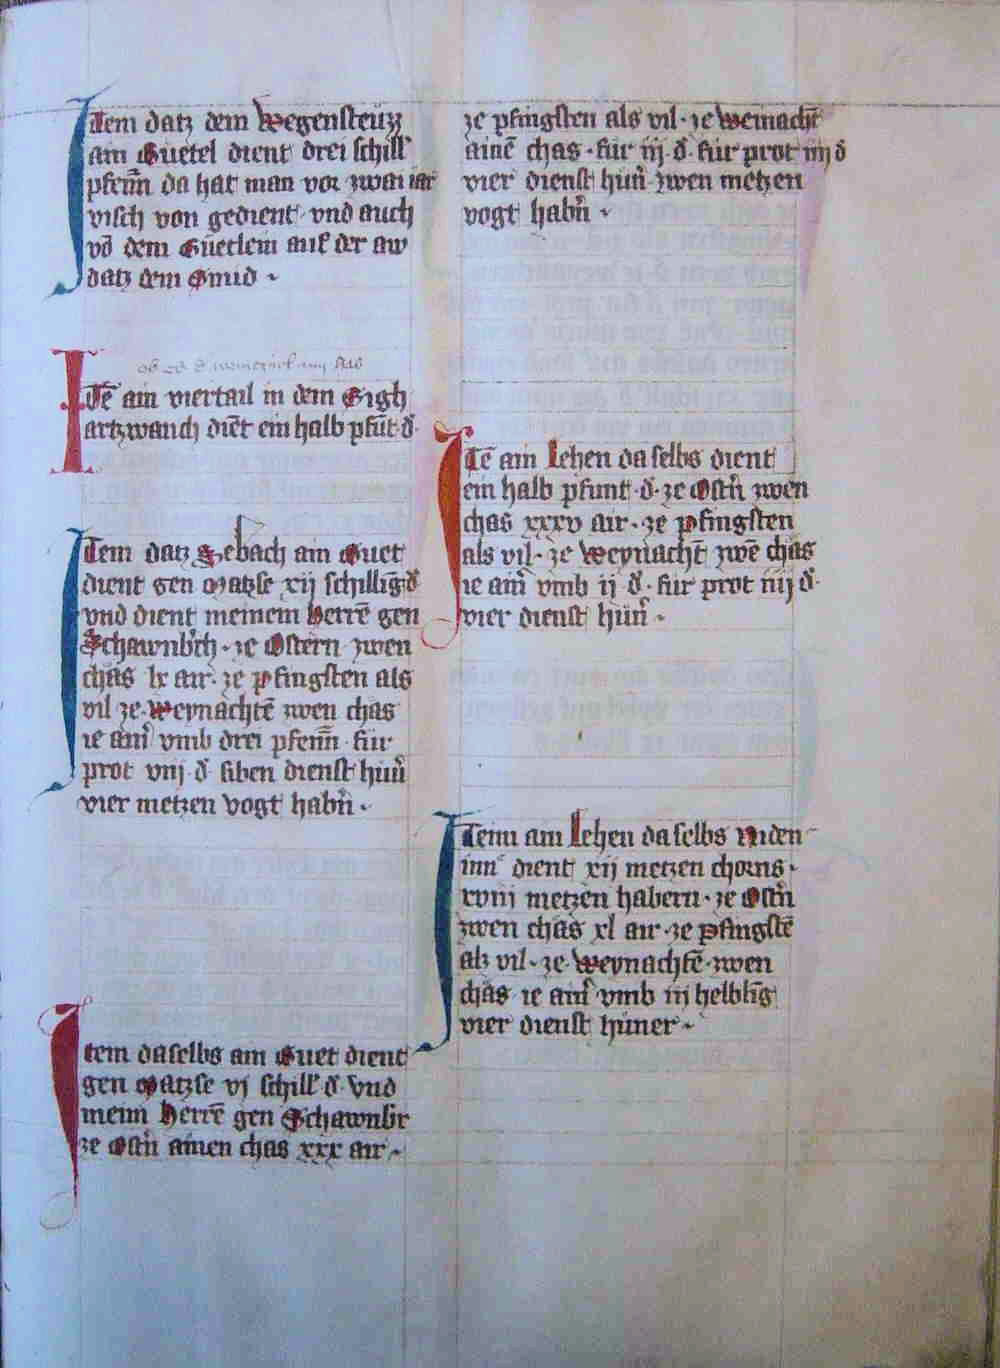 Item datz dem Wegensteüzz
ain Guetel dient drei schill
pfenn̄ da hat man vor zwai iar
visch von gedient · vnd auch
vō dem Güetlein auf der aw
datz dem Smid ·
Itē ain viertail in dem Sigh
artzwanch diēt ein halb pfūt ₰
Item datz Sebach ain Guet
dient gen Matzse xij schillīg ₰
vnd dient meinem herrē gen
Schawnbͬch · ze Ostern zwen
chäs lx air · ze pfingsten als
vil · ze · Weynachtē zwen chäs
ie ain̄ vmb drei pfenn̄ · für
prot viij ₰ · siben dienst hün̄
vier metzen vogt habn̄ ·
Item daselbs ain Guet dient
gen Matzse vj schill ₰ · vnd
meim herrē gen Schawnbͬ
ze Ostn̄ ainen chäs xxx air ·
ze pfingsten als vil · ze Weinacht̄
ainē chäs · für iij · ₰ · für prot iiij ₰
vier dienst hün̄ · zwen metzen
vogt habn̄ ·
Itē ain Lehen daselbs dient
ein halb pfunt · ₰ · ze Ostn̄ zwen
chäs xxxv air · ze pfingsten
als vil · ze Weynacht̄ zwē chäs
ie ain̄ vmb ij ₰ · für prot iiij ₰ ·
vier dienst hün̄ ·
Item ain Lehen daselbs Niden
inn dient xij metzen chorns ·
xviij metzen habern · ze Ostn̄
zwen chäs xl air · ze pfingstē
alz vil · ze · Weynachtē · zwen
chäs ie ain̄ vmb iij helblīg
vier dienst hüner ·